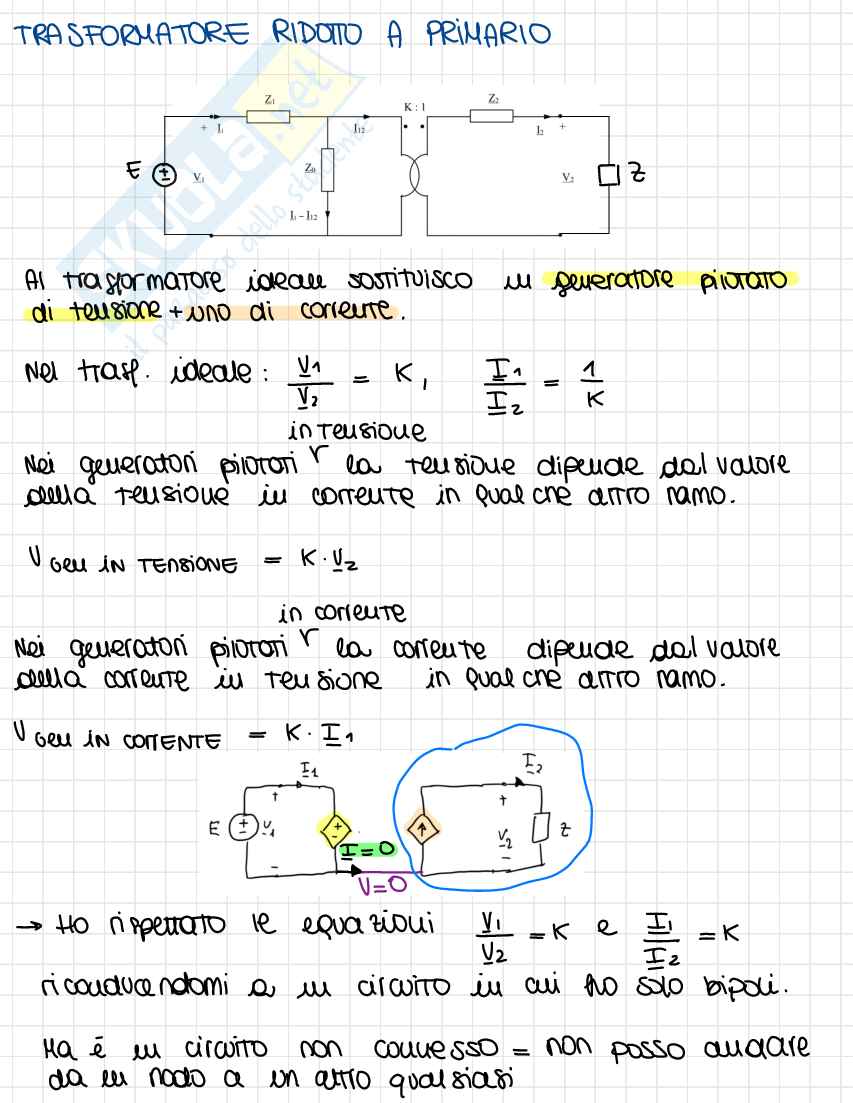 TRASFORMATORE RIDOTTO A PRIMARIO
Z1
K : 1
Z2
+ I1
I12
I2 +
E
V1
Z0
V2
Z
I1 - I12
SKUOLA.net
il paradiso dello studente
Al trasformatore ideale sostituisco un generatore pilotato
di tensione + uno di corrente.
Nel trasf. ideale: V1/V2 = K, I1/I2 = 1/K
in tensione
Nei generatori pilotati la tensione dipende dal valore
della tensione in corrente in qualche altro ramo.
V GEN IN TENSIONE = K · V2
in corrente
Nei generatori pilotati la corrente dipende dal valore
della corrente in tensione in qualche altro ramo.
V GEN IN CORRENTE = K · I1
I1
I2
+
+
E
V1
+
-
V2
Z
I=0
-
-
V=0
→ Ho rispettato le equazioni V1/V2 = K e I1/I2 = K
riconducendomi a un circuito in cui ho solo bipoli.
Ma è un circuito non connesso = non posso andare
da un nodo a un altro qualsiasi